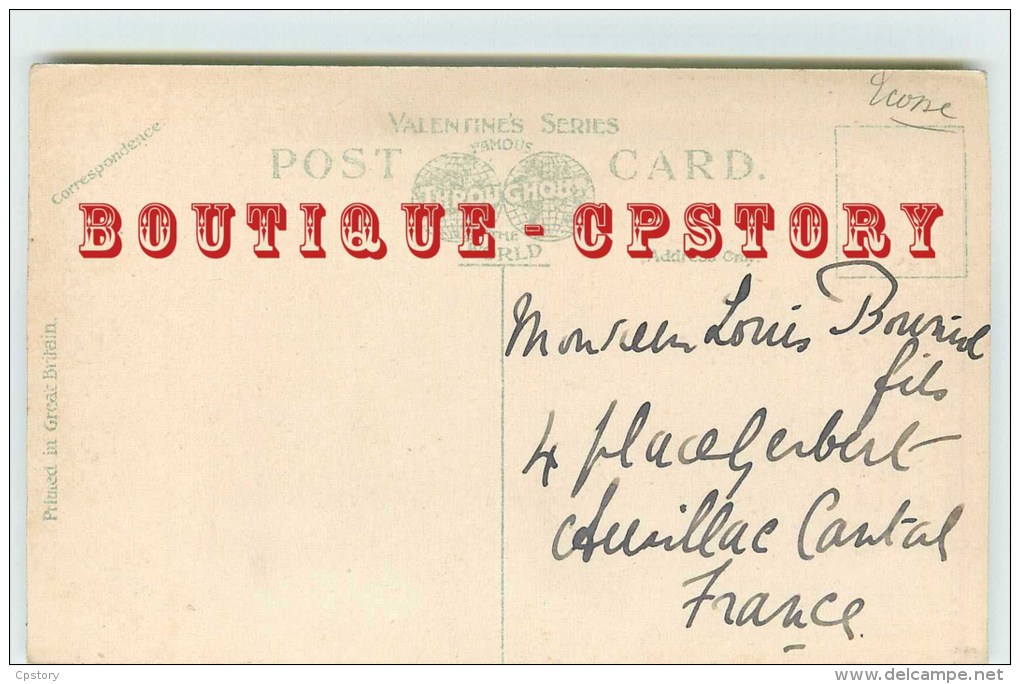 Ecosse
Correspondence.
VALENTINE'S SERIES
POST CARD.
FAMOUS
THROUGHOUT
THE
WORLD
BOUTIQUE - CPSTORY
Address Only.
Printed in Great Britain.
Monsieur Louis
fils
4 place Gerbert
Aurillac Cantal
France
Cpstory
delcampe.net